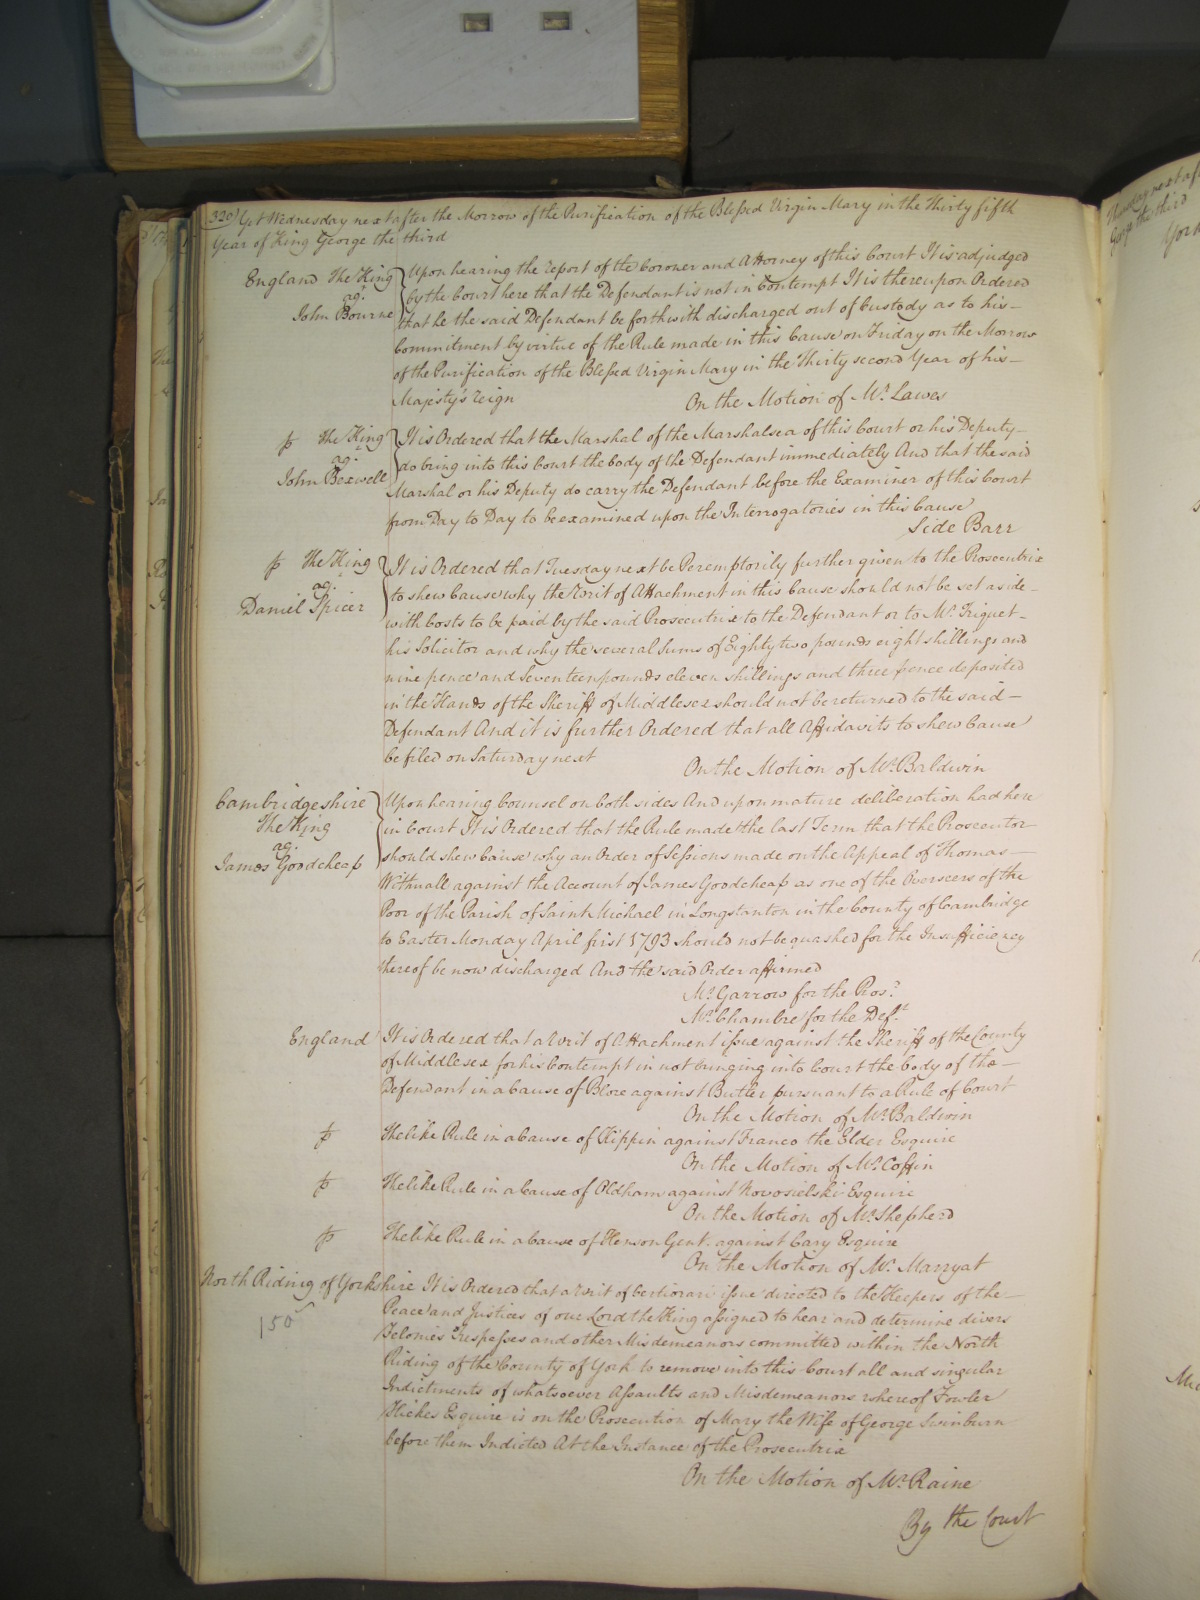 320 Yet Wednesday next after the Morrow of the Purification of the Blessed Virgin Mary in the Thirty fifth
Year of King George the third
England The King
agt
John Bourne
Upon hearing the report of the Coroner and Attorney of this Court It is adjudged
by the Court here that the Defendant is not in Contempt It is thereupon Ordered
that he the said Defendant be forthwith discharged out of Custody as to his
Commitment by virtue of the Rule made in this Cause on Friday on the Morrow
of the Purification of the Blessed Virgin Mary in the Thirty second Year of his
Majesty's reign
On the Motion of Mr. Lawes
The King
agt
John Bexwell
It is Ordered that the Marshal of the Marshalsea of this Court or his Deputy
do bring into this Court the body of the Defendant immediately And that the said
Marshal or his Deputy do carry the Defendant before the Examiner of this Court
from Day to Day to be examined upon the Interrogatories in this Cause
Side Barr
The King
agt
Daniel Spicer
It is Ordered that Tuesday next be Peremptorily further given to the Prosecutrix
to shew Cause why the Writ of Attachment in this Cause should not be set aside
with Costs to be paid by the said Prosecutrix to the Defendant or to Mr. Friquet
his Solicitor and why the several Sums of Eighty two pounds eight shillings and
nine pence and Seventeen pounds eleven shillings and three pence deposited
in the Hands of the Sheriff of Middlesex should not be returned to the said
Defendant And it is further Ordered that all Affidavits to shew Cause
be filed on Saturday next
On the Motion of Mr. Baldwin
Cambridgeshire
The King
agt
James Goodcheap
Upon hearing Counsel on both sides And upon mature deliberation had here
in Court It is Ordered that the Rule made the last Term that the Prosecutor
should shew Cause why an Order of Sessions made on the Appeal of Thomas
Withnall against the Account of James Goodcheap as one of the Overseers of the
Poor of the Parish of Saint Michael in Longstanton in the County of Cambridge
to Easter Monday April first 1793 should not be quashed for the Insufficiency
thereof be now discharged And the said Order affirmed
Mr. Garrow for the Pros.
Mr. Chambre for the Deft.
England It is Ordered that a Writ of Attachment issue against the Sheriff of the County
of Middlesex for his Contempt in not bringing into Court the body of the
Defendant in a Cause of Blore against Butler pursuant to a Rule of Court
On the Motion of Mr. Baldwin
The like Rule in a Cause of Kippin against Franco the Elder Esquire
On the Motion of Mr. Coffin
The like Rule in a Cause of Oldham against Novosielski Esquire
On the Motion of Mr. Shepherd
The like Rule in a Cause of Henson Gent. against Cary Esquire
On the Motion of Mr. Marryat
North Riding of Yorkshire It is Ordered that a Writ of Certiorari issue directed to the Keepers of the
Peace and Justices of our Lord the King assigned to hear and determine divers
Felonies Trespasses and other Misdemeanors committed within the North
Riding of the County of York to remove into this Court all and singular
Indictments of whatsoever Assaults and Misdemeanors whereof Fowler
Hickes Esquire is on the Prosecution of Mary the Wife of George Swinburn
before them Indicted At the Instance of the Prosecutrix
150
On the Motion of Mr. Raine
By the Court